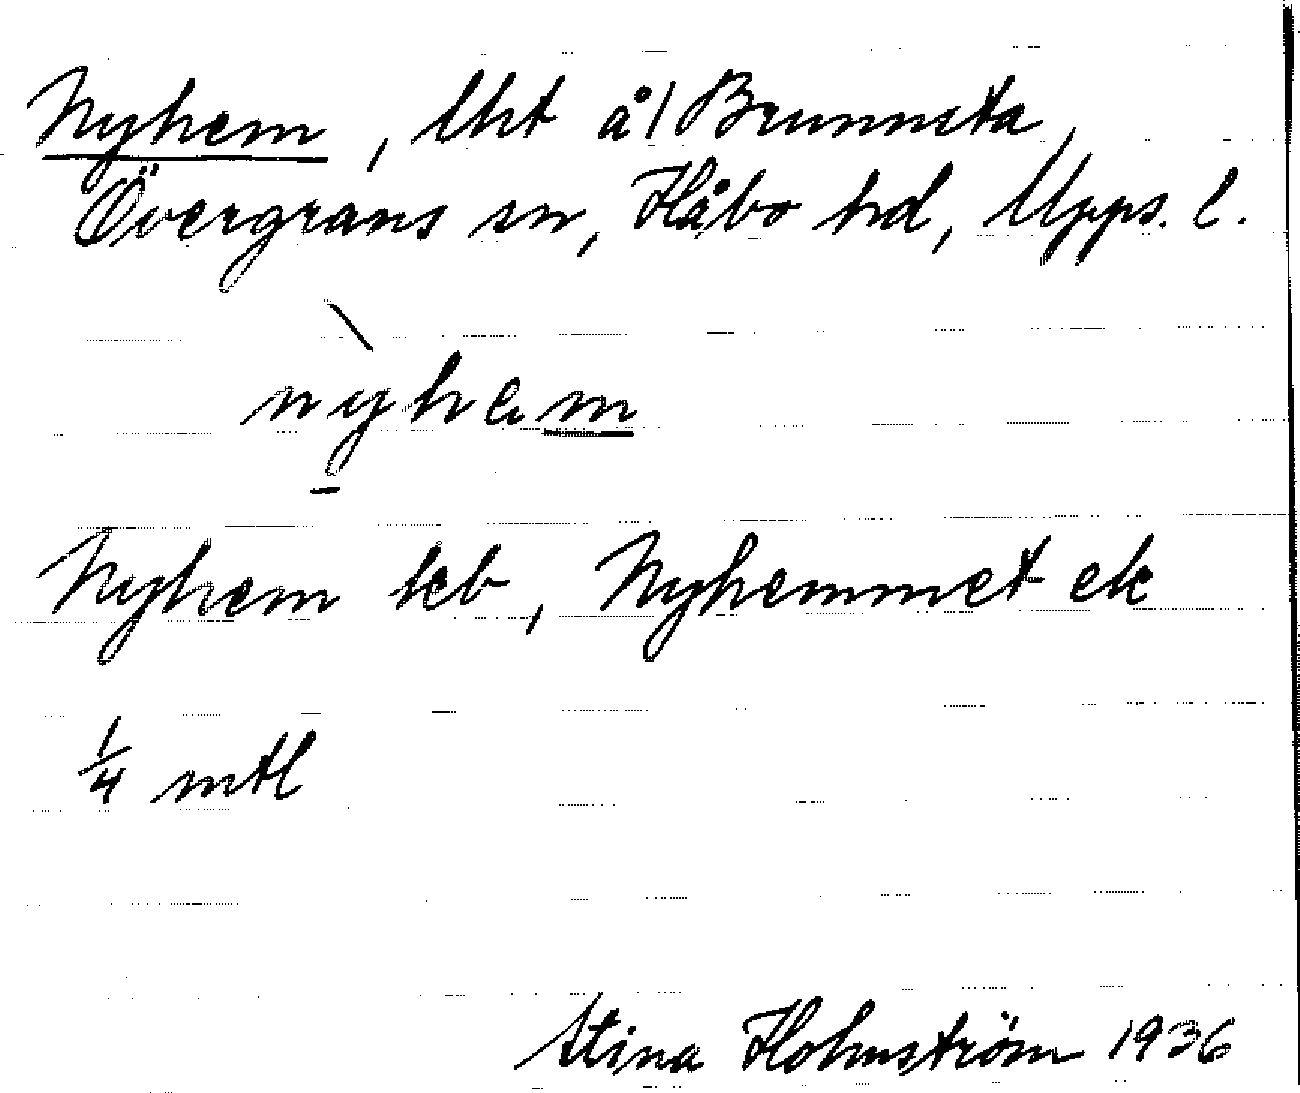 Nyhem, lht å/ Brunnsta,
Övergrans sn, Håbo hd, Upps. l.
nyhem
Nyhem kb, Nyhemmet ek
1/4 mtl
Stina Holmström 1936